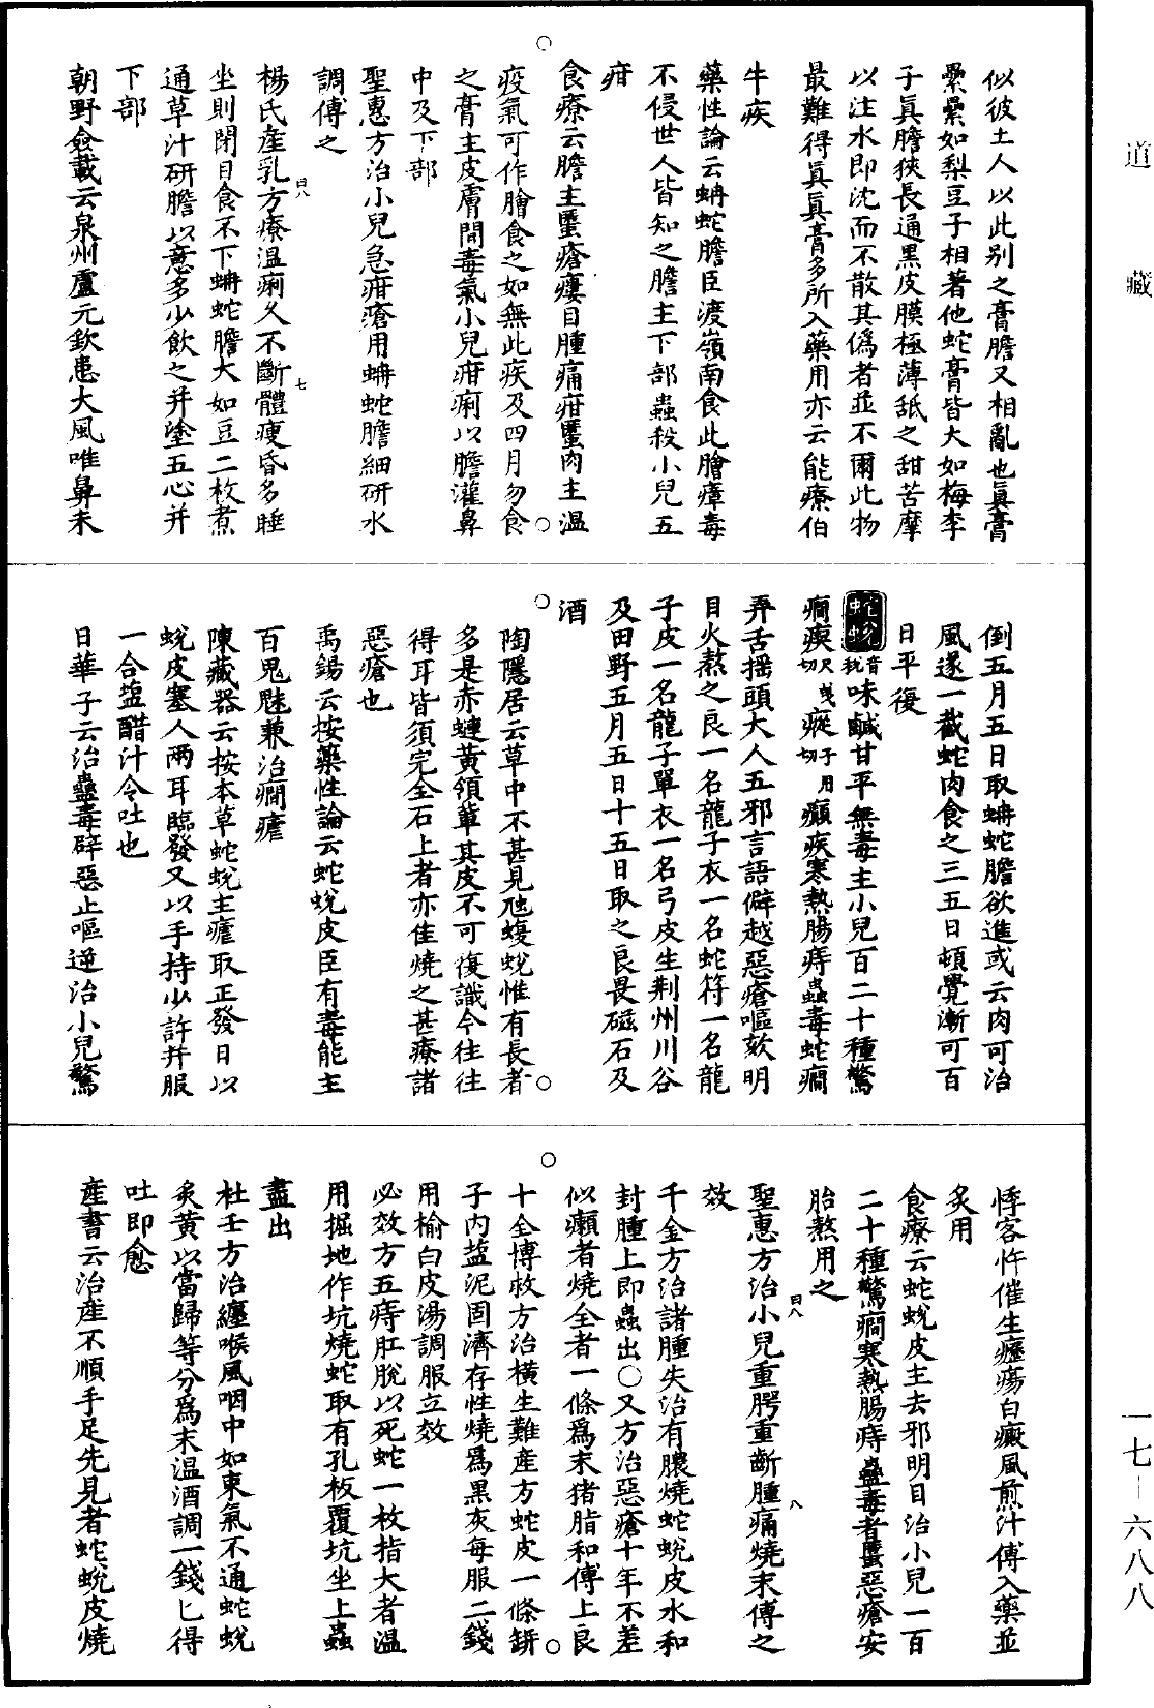 道藏
似彼土人以此别之膏膽又相亂也眞膏
纍纍如梨豆子相著他蛇膏皆大如梅李
子眞膽狹長通黑皮膜極薄舐之甜苦摩
以注水即沈而不散其僞者並不爾此物
最難得眞眞膏多所入藥用亦云能療伯
牛疾
藥性論云蚺蛇膽臣渡嶺南食此膾瘴毒
不侵世人皆知之膽主下部蟲殺小兒五
疳
食療云膽主䘌瘡瘻目腫痛疳䘌肉主温
疫氣可作膾食之如無此疾及四月勿食
之膏主皮膚間毒氣小兒疳痢以膽灌鼻
中及下部
聖惠方治小兒急疳瘡用蚺蛇膽細研水
調傅之
曰八
七
楊氏産乳方療温痢久不斷體瘦昏多睡
坐則閉目食不下蚺蛇膽大如豆二枚煮
通草汁研膽以意多少飲之并塗五心并
下部
朝野僉載云泉州盧元欽患大風唯鼻未
倒五月五日取蚺蛇膽欲進或云肉可治
風遂一截蛇肉食之三五日頓覺漸可百
日平復
蛇蛻音稅味鹹甘平無毒主小兒百二十種驚
癇瘈尺曳切瘲子用切癲疾寒熱腸痔蟲毒蛇癇
弄舌摇頭大人五邪言語僻越惡瘡嘔欬明
目火熬之良一名龍子衣一名蛇符一名龍
子皮一名龍子單衣一名弓皮生荆州川谷
及田野五月五日十五日取之良畏磁石及
酒
陶隱居云草中不甚見虺蝮蛻惟有長者
多是赤蜖黃領輩其皮不可復識今往往
得耳皆須完全石上者亦佳燒之甚療諸
惡瘡也
禹錫云按藥性論云蛇蛻皮臣有毒能主
百鬼魅兼治癇瘧
陳藏器云按本草蛇蛻主瘧取正發日以
蛻皮塞人兩耳臨發又以手持少許并服
一合鹽醋汁令吐也
日華子云治蠱毒辟惡止嘔逆治小兒驚
悸客忤催生癧瘍白癜風煎汁傅入藥並
炙用
食療云蛇蛻皮主去邪明目治小兒一百
二十種驚癇寒熱腸痔蠱毒者䘌惡瘡安
胎熬用之
曰八
八
聖惠方治小兒重腭重斷腫痛燒末傅之
效
千金方治諸腫失治有膿燒蛇蛻皮水和
封腫上即蟲出○又方治惡瘡十年不差
似癩者燒全者一條爲末猪脂和傅上良
十全博救方治横生難産方蛇皮一條餅
子内鹽泥固濟存性燒爲黑灰每服二錢
用榆白皮湯調服立效
必效方五痔肛脱以死蛇一枚指大者温
用掘地作坑燒蛇取有孔板覆坑坐上蟲
盡出
杜壬方治纏喉風咽中如束氣不通蛇蛻
炙黃以當歸等分爲末温酒調一錢匕得
吐即愈
産書云治産不順手足先見者蛇蛻皮燒
一七—六八八